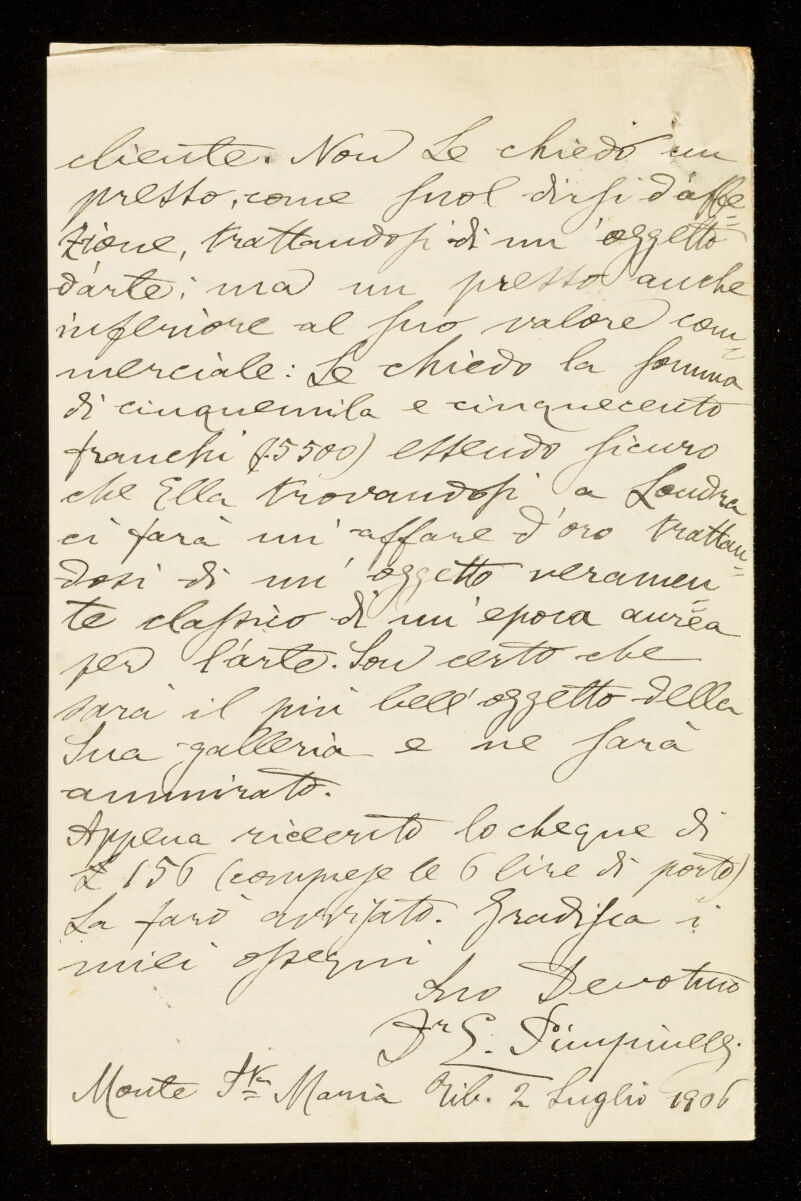 cliente. Non Le chiedo un
presso, come suol dirsi d'affe=
zione, trattandosi di un' oggetto
d'arte; ma un presso anche
inferiore al suo valore com=
merciale: Le chiedo la somma
di cinquemila e cinquecento
franchi (f. 5500) essendo sicuro
che Ella trovandosi a Londra
ci farà un' affare d'oro trattan=
dosi di un' oggetto veramen=
te classico di un' epoca aurea
per l'arte. Son certo che
sarà il più bell' oggetto della
Sua galleria e ne sarà
ammirato.
Appena ricevuto lo cheque di
£ 156 (comprese le 6 lire di porto)
La farò avvisato. Gradisca i
miei ossequi
Suo Devotmo
Dr E. Pimpinelli
Monte Sta Maria Tib. 2 Luglio 1906